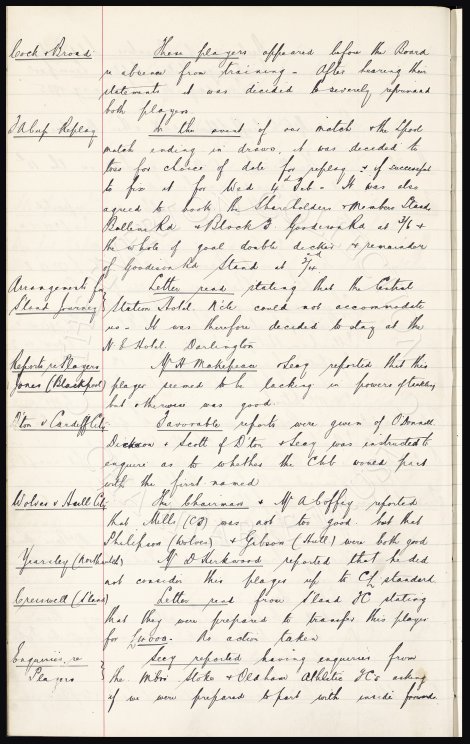 Cock & Broad. These players appeared before the Board
in absence from training - After hearing their
statements it was decided to severely reprimand
both players
F A Cup Replay In the event of our match & the L'pool
match ending in draws, it was decided to
toss for choice of date for replay & if successful
to fix it for Wed 4th Feb - It was also
agreed to book the Shareholders & Members Stands,
Bullens Rd & Block 3. Goodison Rd at 3/6 &
the whole of goal double decker & remainder
of Goodison Rd Stand at 2/4
Arrangements for Letter read stating that the Central
S'land Journey Station Hotel, N'cle could not accommodate
us - It was therefore decided to stay at the
N E Hotel Darlington
Reports re Players Mr H Makepeace & Secy reported that this
Jones (Blackpool) player seemed to be lacking in powers of tackling
but otherwise was good.
D'ton & Cardiff City Favorable reports were given of O'Donnell
Dickson & Scott of D'ton & Secy was instructed to
enquire as to whether the Club would part
with the first named
Wolves & Hull City The Chairman & Mr A Coffey reported
that Mills (CB) was not too good. but that
Philipson (Wolves) & Gibson (Hull) were both good
Yearsley (Northwich) Mr D Kirkwood reported that he did
not consider this player up to Ch standard
Cresswell (S'land) Letter read from S'land FC stating
that they were prepared to transfer this player
for £10,000. No action taken
Enquiries re Secy reported having enquiries from
Players the M'bro Stoke & Oldham Athletic FC's asking
if we were prepared to part with inside forwards.